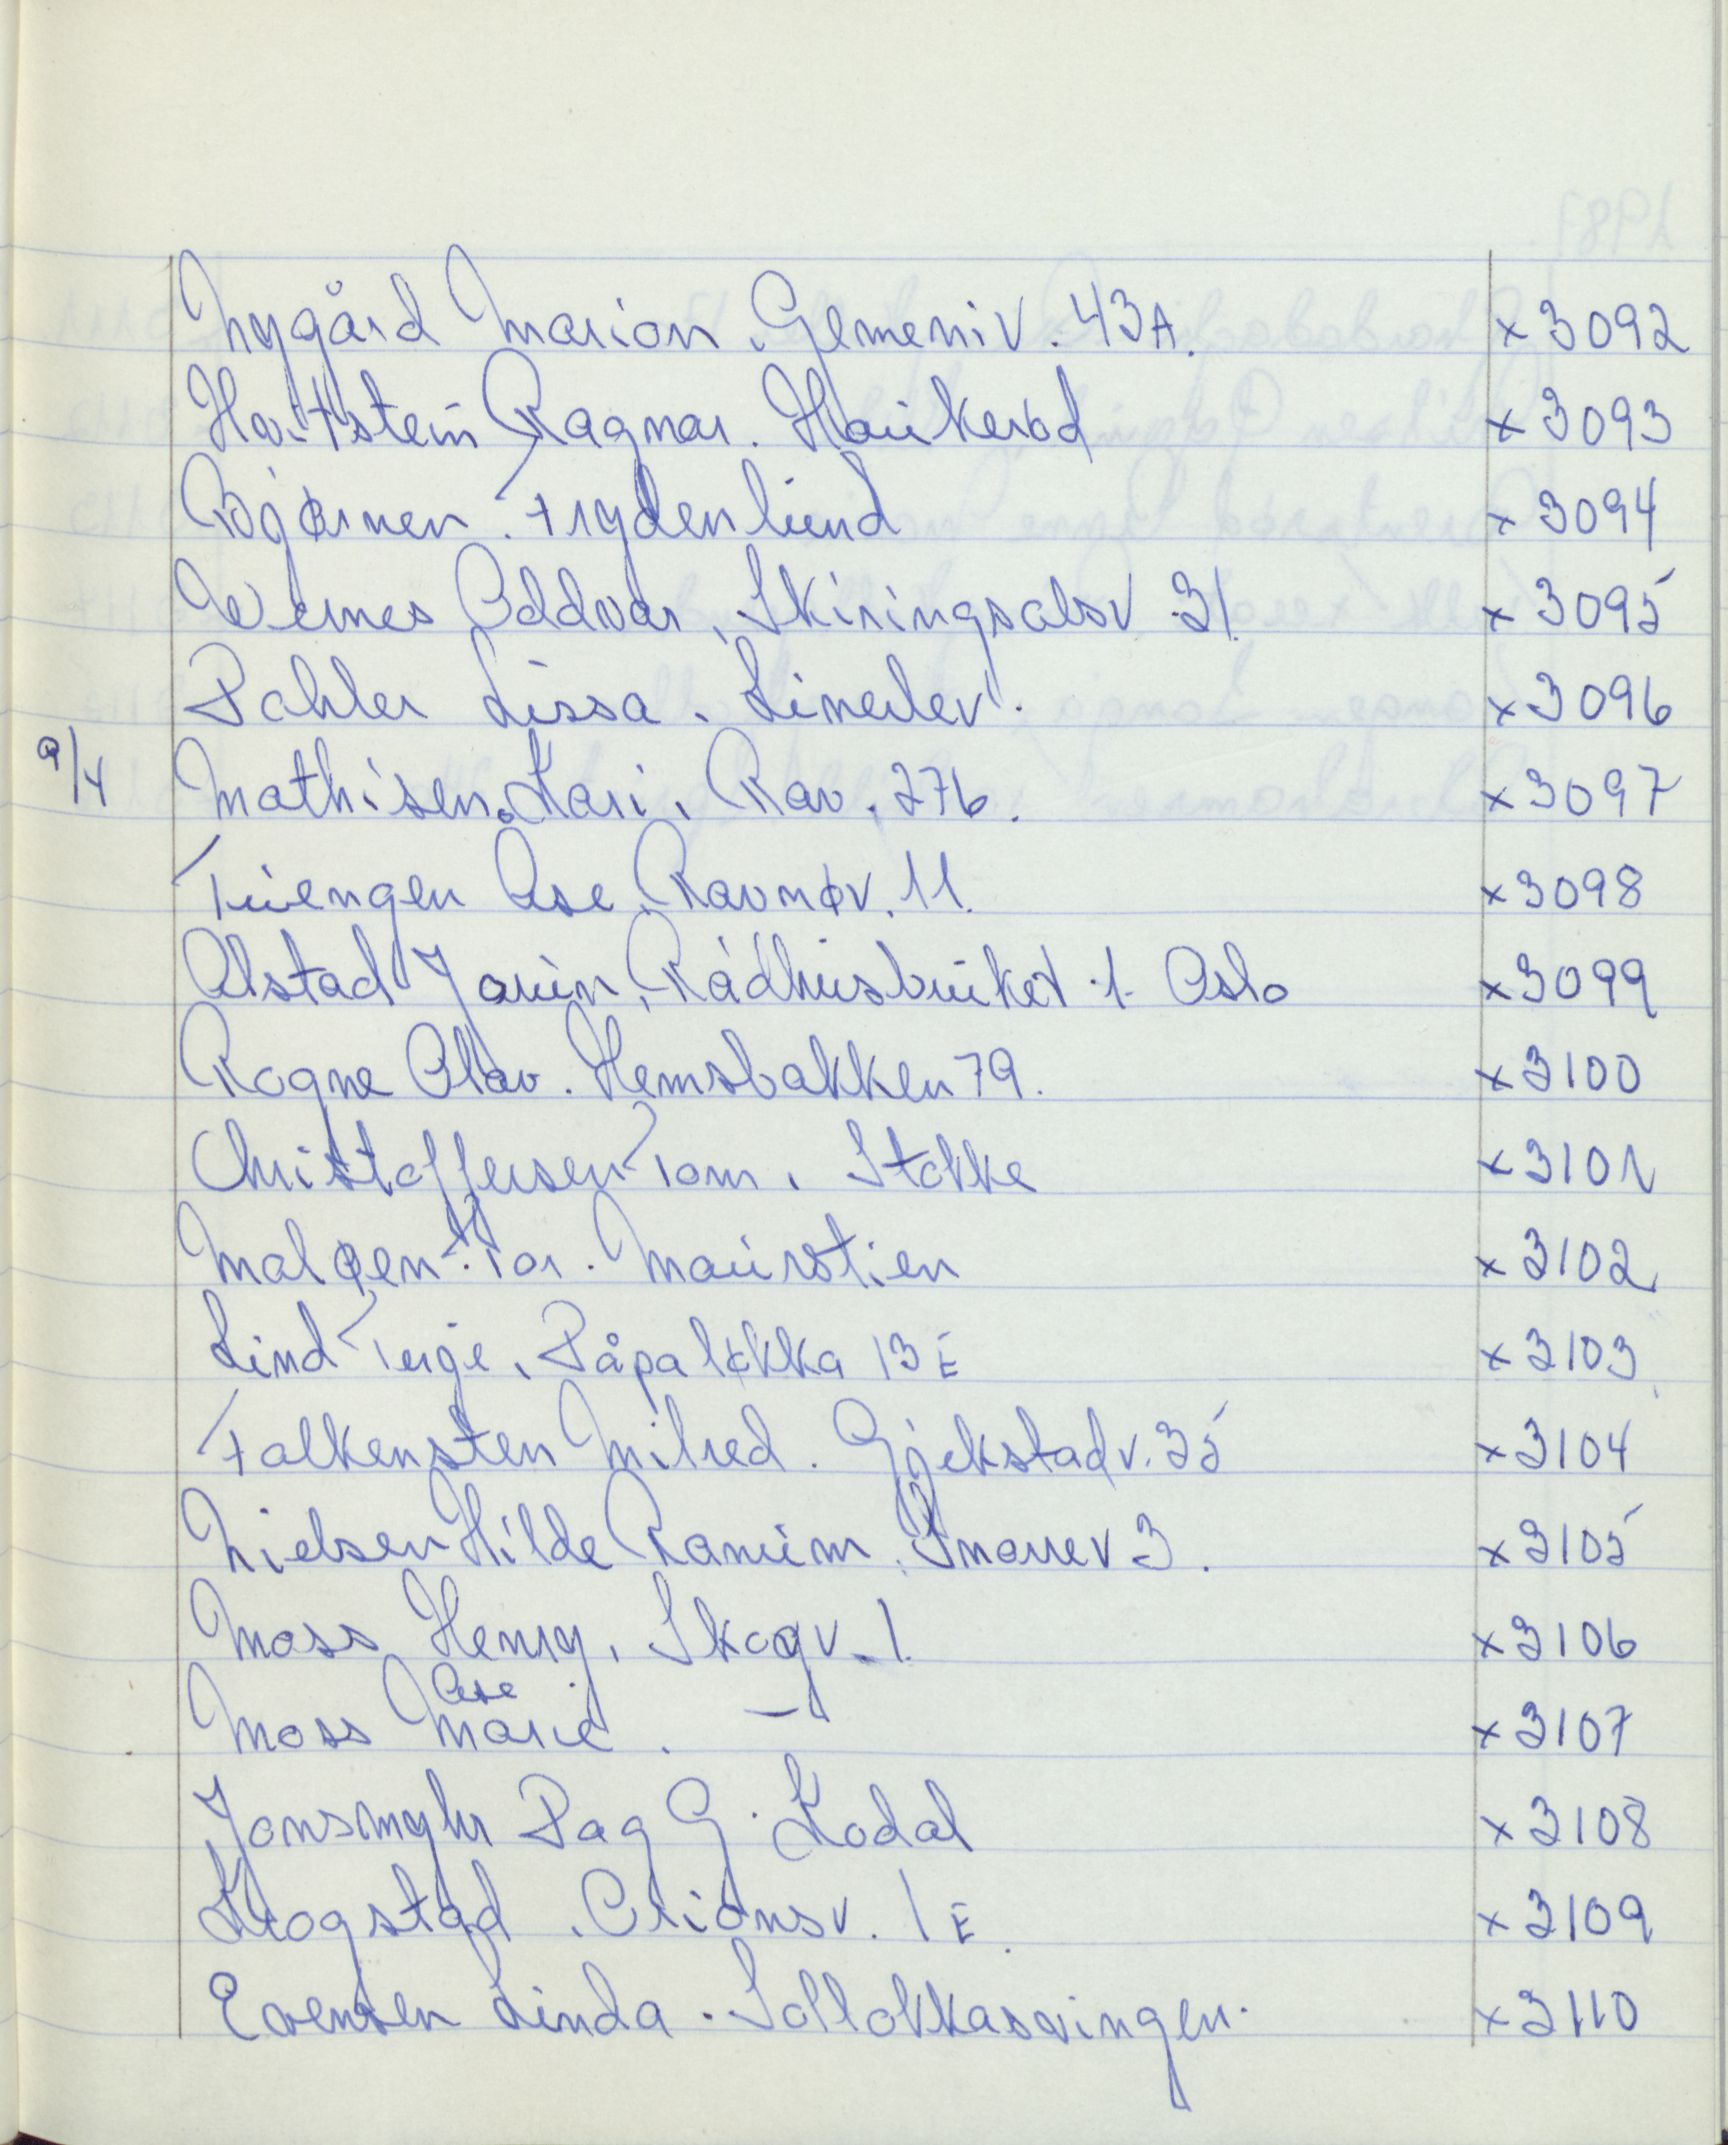 Nygård Marion. Gemeniv. 43A. x 3092
Hartstein Ragnar. Haukerød x 3093
Bjørnen. Frydenlund x 3094
Wernes Oddvar, Skiringsalsv 31. x 3095
Dahler Lissa. Linerlev. x 3096
9/4 Mathisen Kari, Rav. 276. x 3097
Tuengen Åse. Ravnøv. 11. x 3098
Alstad Jorun, Rådhusbruket 1. Oslo x 3099
Rogne Olav. Hemsbakken 79. x 3100
Christoffersen Tom. Stokke x 3101
Maløen Tor. Maurstien x 3102
Lind Terje. Påpaløkka 13E x 3103
Falkensten Milred. Gjekstadv. 35 x 3104
Nielsen Hilde Ramum. Snarrev 3. x 3105
Moss Henry, Skogv. 1. x 3106
Moss Åse Marie. — x 3107
Jonsmyhr Dag G. Kodal x 3108
Krogstad. Orionsv. 1E. x 3109
Evensen Linda. Solløkkasvingen. x 3110